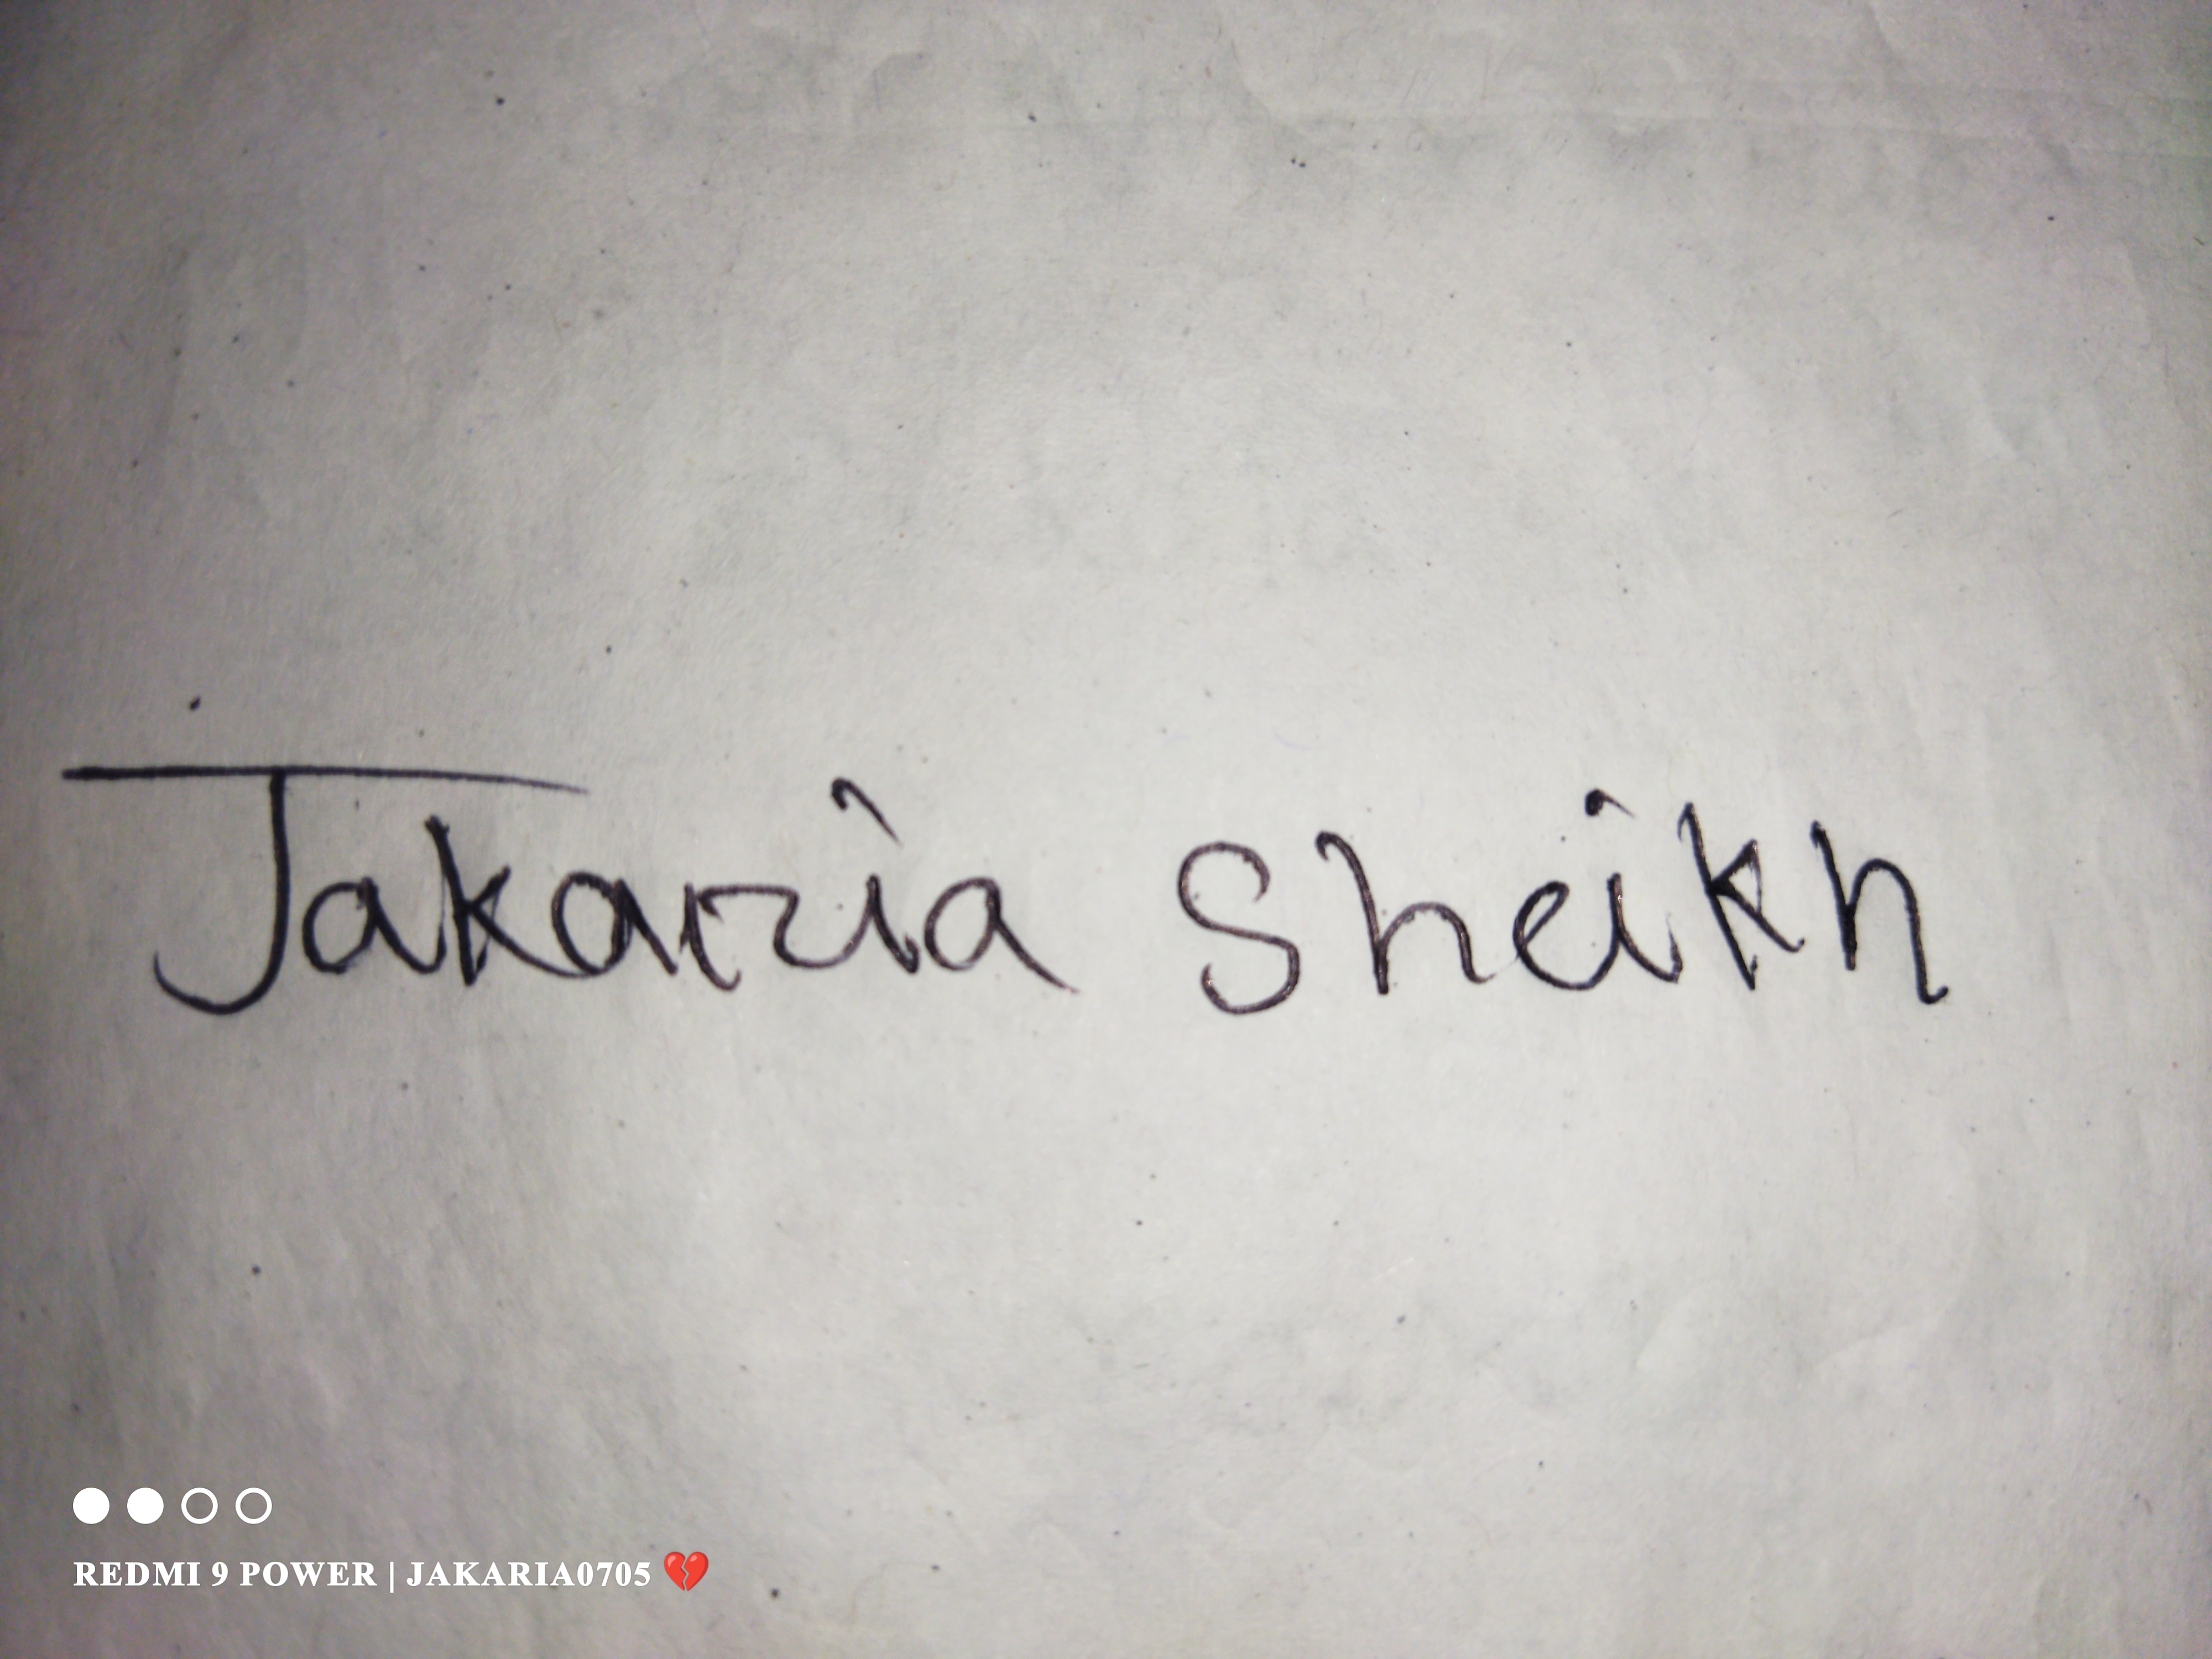 Jakaria Sheikh
REDMI 9 POWER | JAKARIA0705 💔